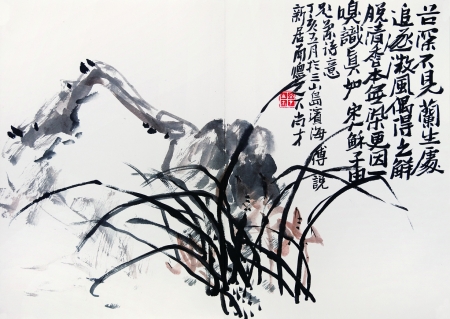 谷深不見蘭生處
追逐微風偶得之解
脫清香本無染更因一
嗅識真如 宋蘇子由
詩意
丁亥五月於三山島濱海 傅說
新居雨 之下尚才